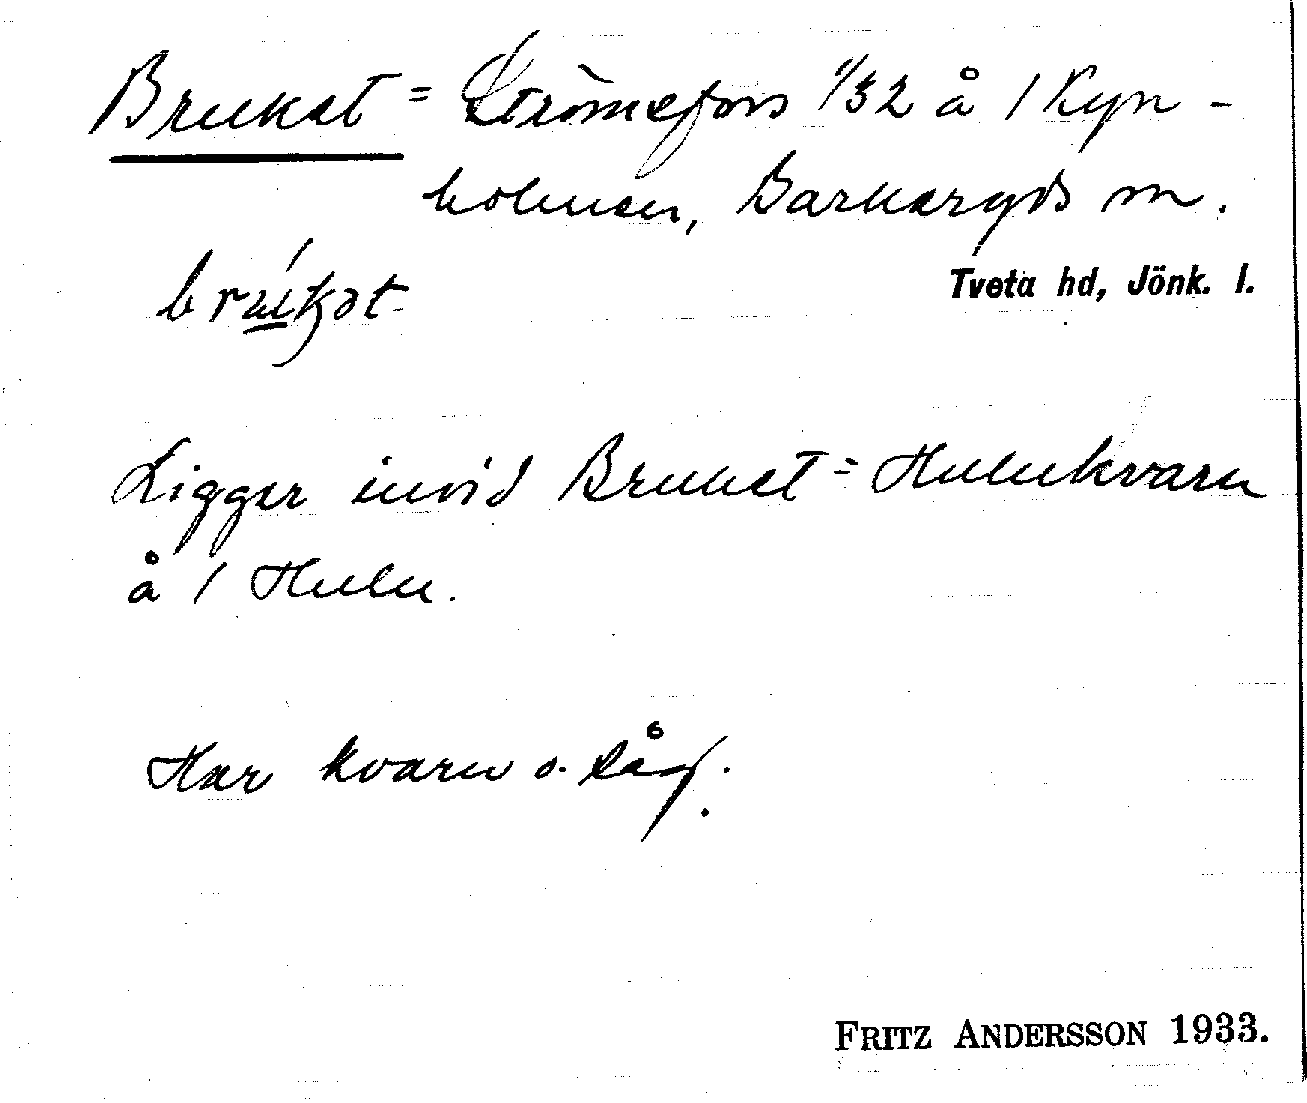 Bruket = Strömsfors 1/32 å 1 Kyn-
holmen, Barkeryds sn.
Tveta hd, Jönk. l.
brúkət
Ligger invid Bruket = Hulukvarn
å 1 Hulu.
Har kvarn o. såg.
FRITZ ANDERSSON 1933.